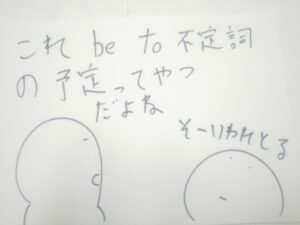 これ be to 不定詞
の予定ってやつ
だよね
そーいわれとる